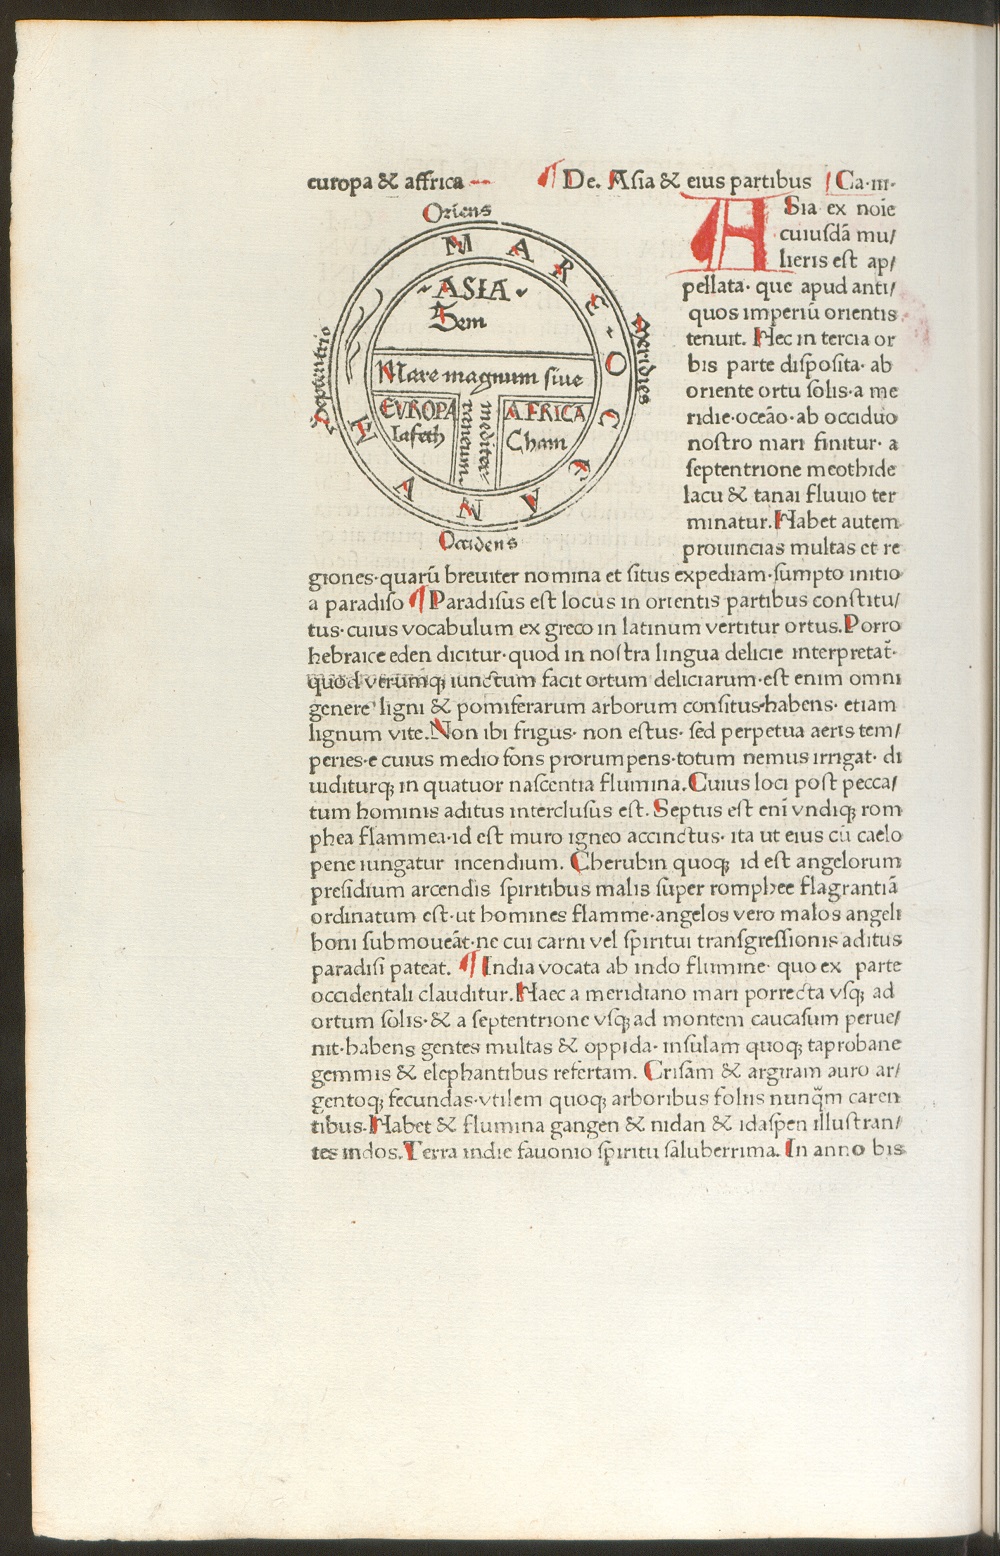 europa & affrica
¶ De. Asia & eius partibus Ca·III·
Oriens
MARE OCCEANVM
Septentrio
Meridies
Occidens
ASIA
Sem
Mare magnum siue
mediter
raneum.
EVROPA
Iafeth
AFRICA
Cham
ASia ex noīe
cuiusdā mu/
lieris est ap/
pellata· que apud anti/
quos imperiū orientis
tenuit. Hec in tercia or
bis parte disposita· ab
oriente ortu solis·a me
ridie·oceāo·ab occiduo
nostro mari finitur· a
septentrione meothide
lacu & tanai fluuio ter
minatur. Habet autem
prouincias multas et re
giones·quarū breuiter nomina et situs expediam·sumpto initio
a paradiso ¶ Paradisus est locus in orientis partibus constitu/
tus·cuius vocabulum ex greco in latinum vertitur ortus. Porro
hebraice eden dicitur·quod in nostra lingua delicie interpretat̄·
quod verumq; iunctum facit ortum deliciarum·est enim omni
genere ligni & pomiferarum arborum consitus·habens· etiam
lignum vite. Non ibi frigus· non estus· sed perpetua aeris tem/
peries·e cuius medio fons prorumpens·totum nemus irrigat· di
uiditurq; in quatuor nascentia flumina. Cuius loci post pecca/
tum hominis aditus interclusus est. Septus est enī vndiq; rom
phea flammea·id est muro igneo accinctus· ita ut eius cū caelo
pene iungatur incendium. Cherubin quoq; id est angelorum
presidium arcendis spiritibus malis super romphee flagrantiā
ordinatum est·ut homines flamme·angelos vero malos angeli
boni submoueāt·ne cui carni vel spiritui transgressionis aditus
paradisi pateat. ¶ India vocata ab indo flumine· quo ex parte
occidentali clauditur. Haec a meridiano mari porrecta vsq; ad
ortum solis·& a septentrione vsq; ad montem caucasum perue/
nit·habens gentes multas & oppida· insulam quoq; taprobane
gemmis & elephantibus refertam. Crisam & argiram auro ar/
gentoq; fecundas·vtilem quoq; arboribus foliis nunq̄m caren
tibus. Habet & flumina gangen & nidan & idaspen illustran/
tes indos. Terra indie fauonio spiritu saluberrima. In anno bis